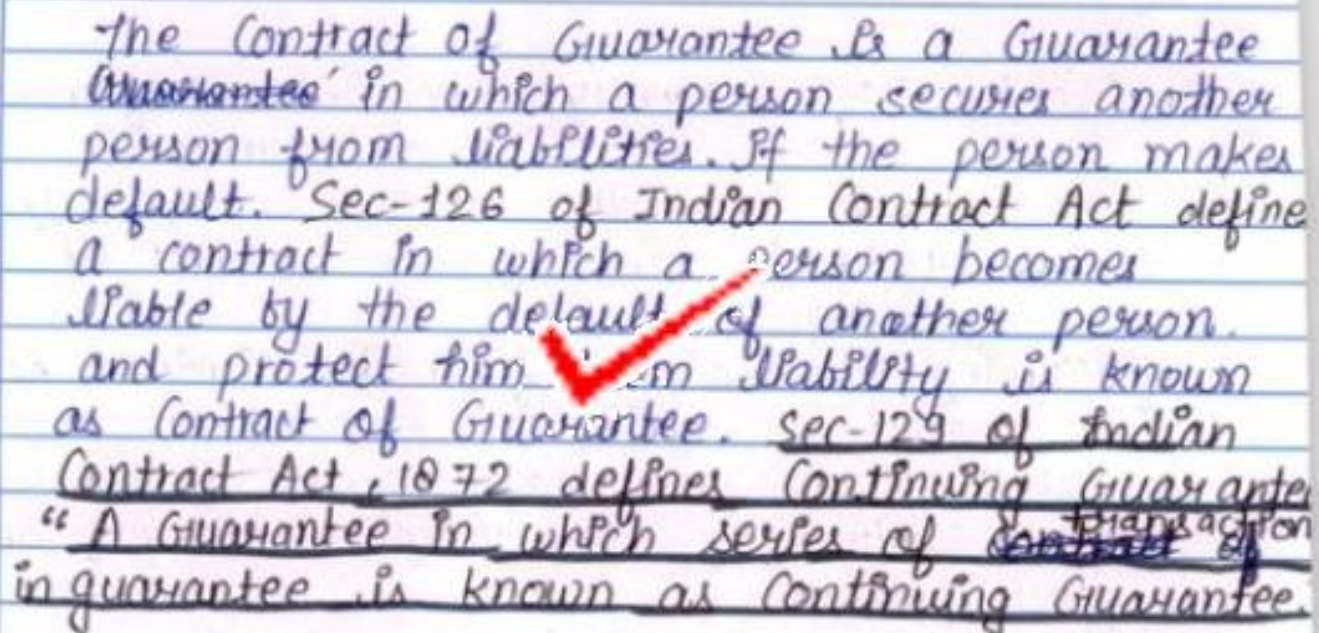 the Contract of Guarantee is a Guarantee
Guarantee in which a person secures another
person from liabilities. If the person makes
default. Sec-126 of Indian Contract Act define
a contract in which a person becomes
liable by the default of another person.
and protect him from liability is known
as Contract of Guarantee. Sec-129 of Indian
Contract Act, 1872 defines Continuing Guarantee
“A Guarantee in which series of transaction of
in guarantee is known as Continuing Guarantee.